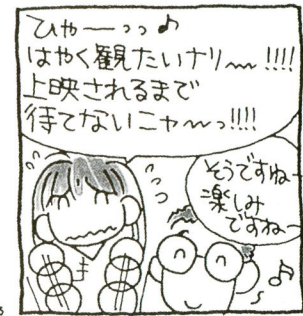 ひゃーっっ♪
はやく観たいナリ〜〜!!!!
上映されるまで
待てないニャ〜っ!!!!
そうですねー
楽しみ
ですねー